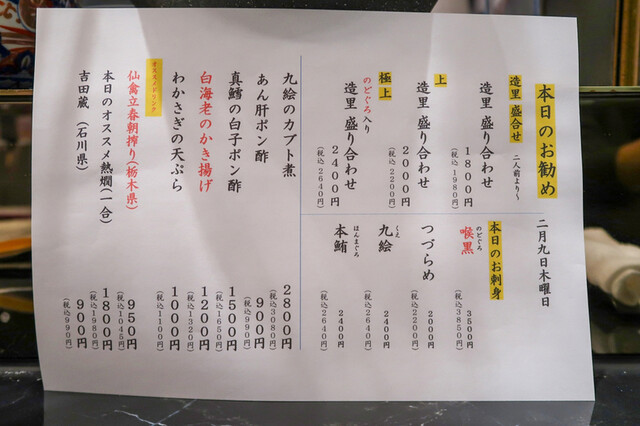 本日のお勧め
二月九日木曜日
造里 盛合せ 二人前より～
造里 盛り合わせ 1800円
(税込 1980円)
上
造里 盛り合わせ 2000円
(税込 2200円)
極上
のどぐろ入り
造里 盛り合わせ 2400円
(税込 2640円)
本日のお刺身
のどぐろ
喉黒 3500円
(税込 3850円)
つづらめ 2000円
(税込 2200円)
くえ
九絵 2400円
(税込 2640円)
ほんまぐろ
本鮪 2400円
(税込 2640円)
九絵のカブト煮 2800円
(税込 3080円)
あん肝ポン酢 900円
(税込 990円)
真鱈の白子ポン酢 1500円
(税込 1650円)
白海老のかき揚げ 1200円
(税込 1320円)
わかさぎの天ぷら 1000円
(税込 1100円)
オススメドリンク
仙禽立春朝搾り(栃木県) 950円
(税込 1045円)
本日のオススメ熱燗(一合) 1800円
(税込 1980円)
吉田蔵 (石川県) 900円
(税込 990円)